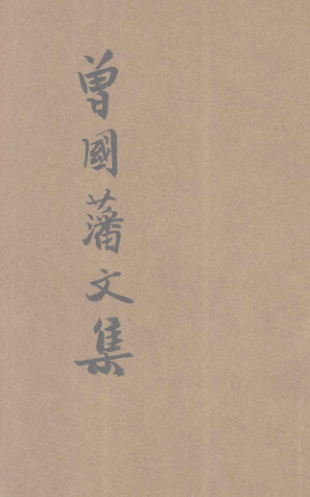 曾國藩文集